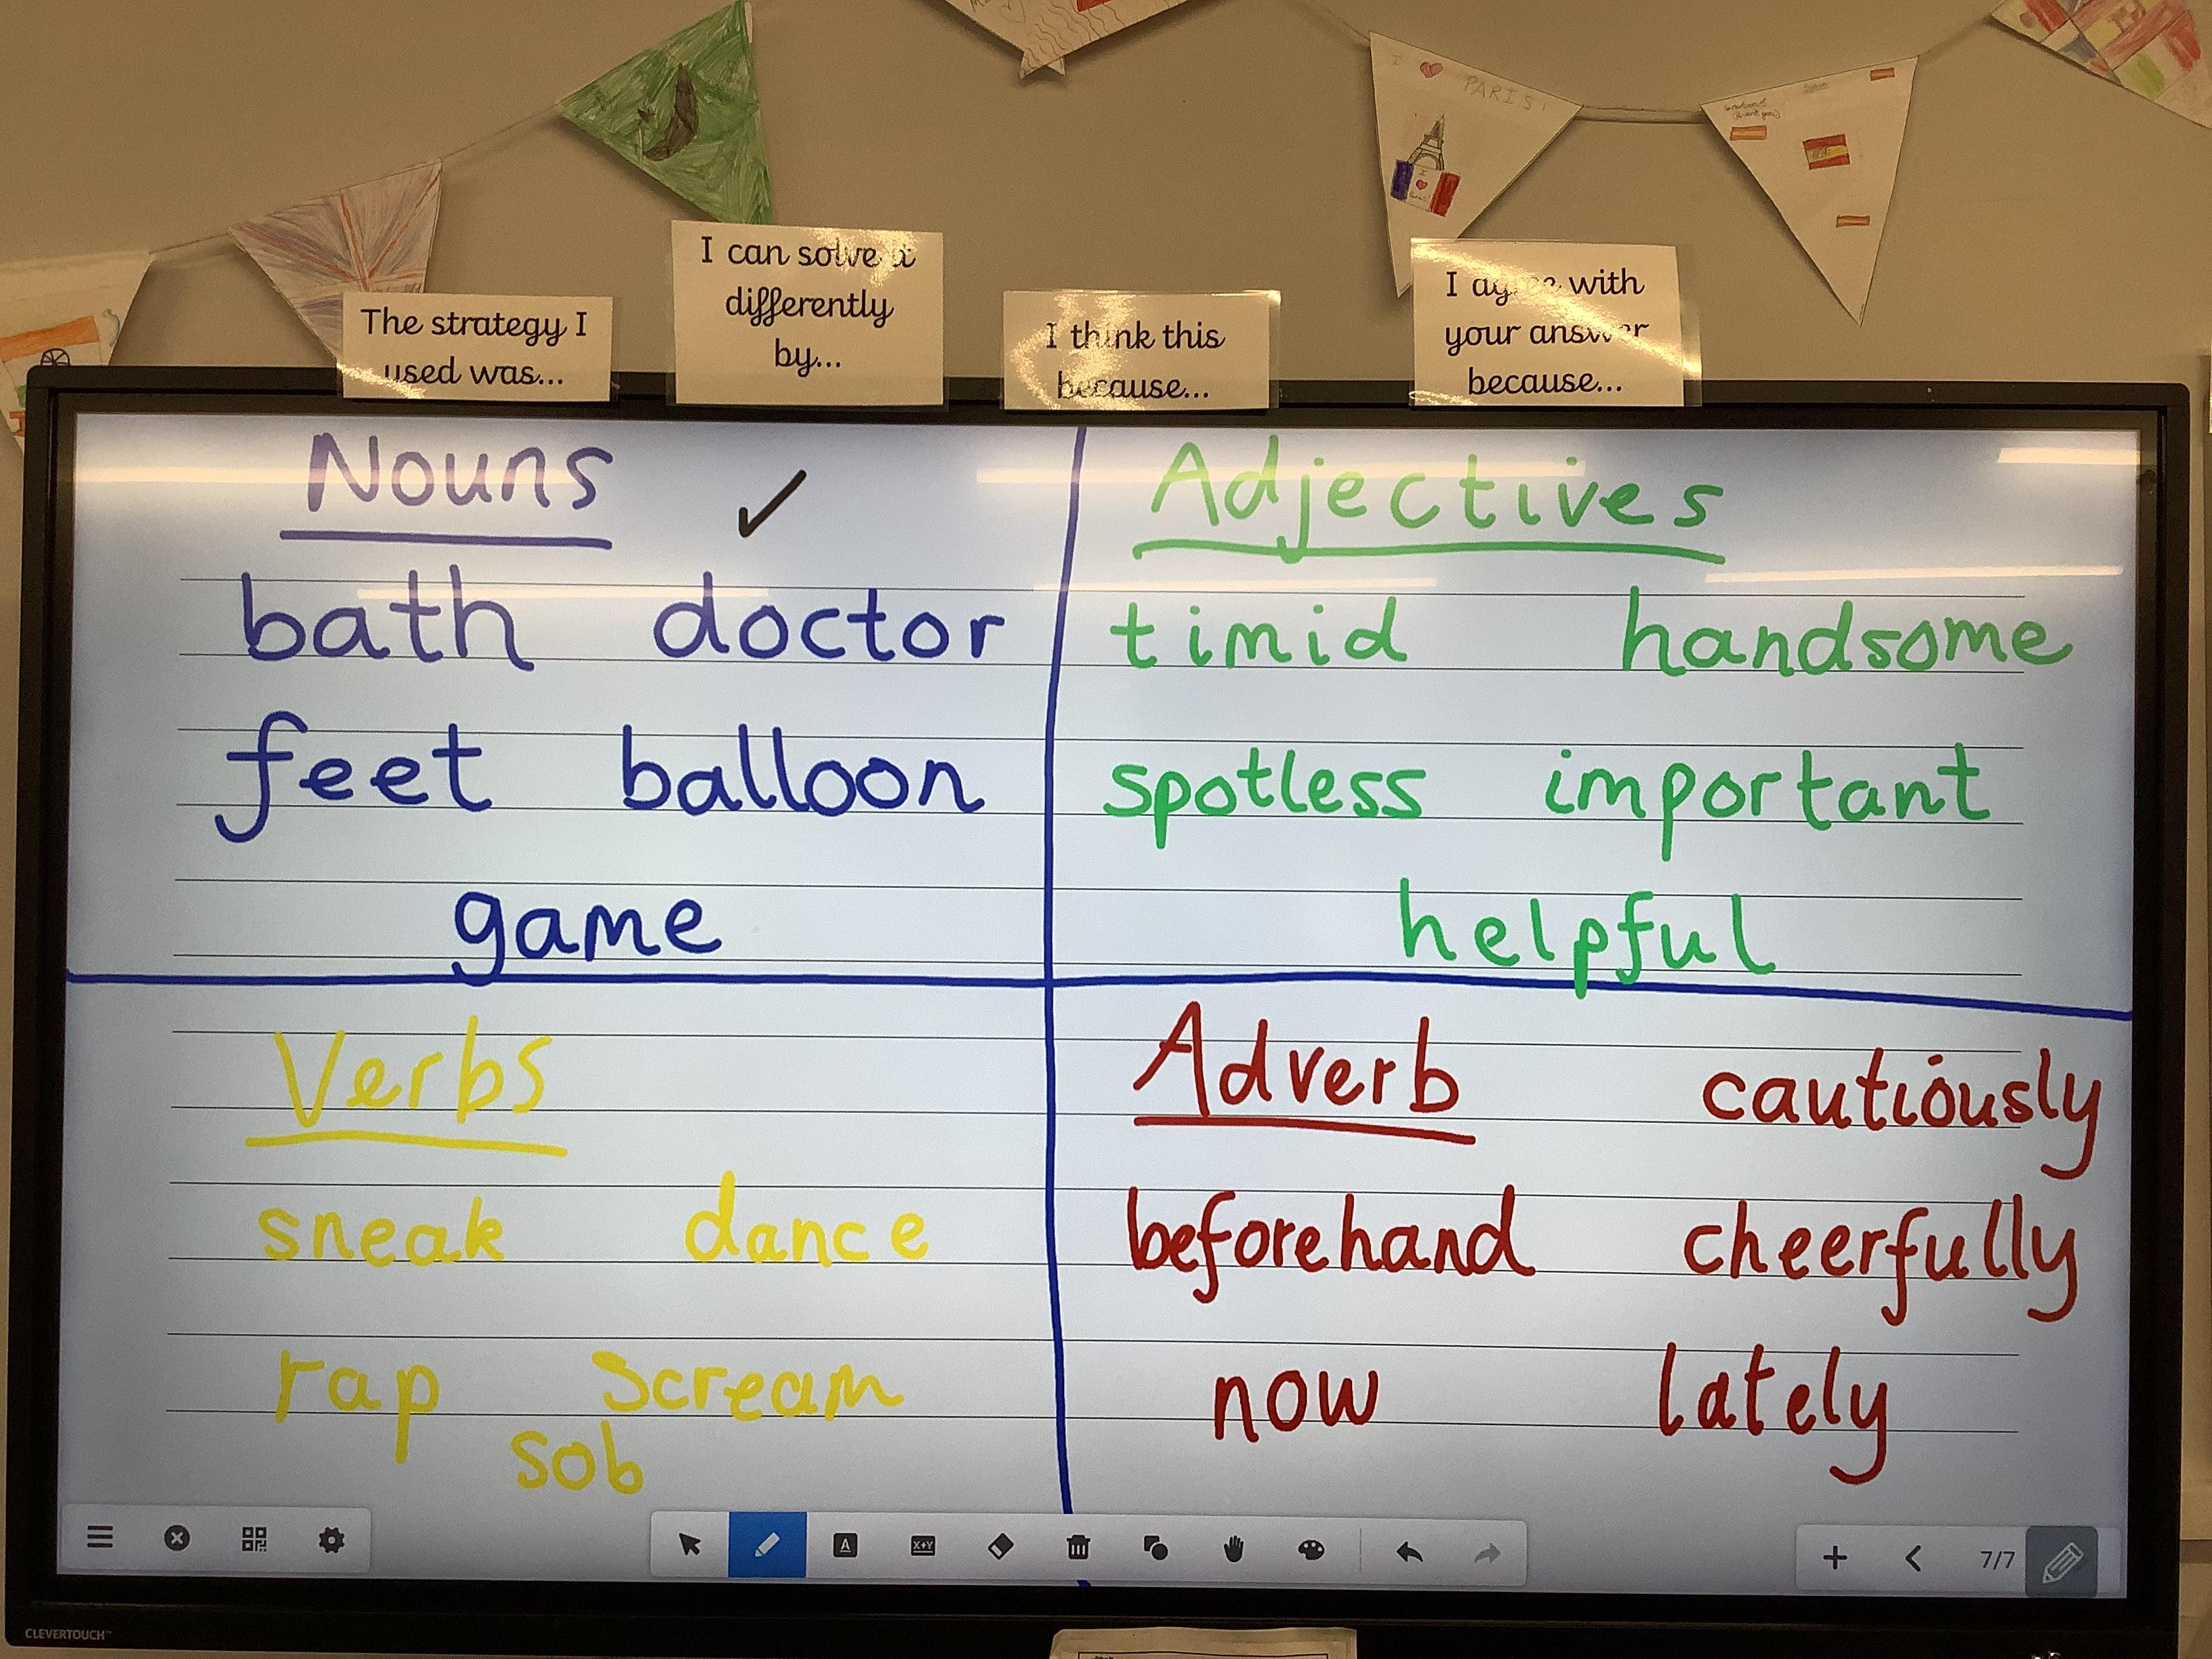 I ♥ PARIS!
The strategy I
used was...
I can solve it
differently
by...
I think this
because...
I agree with
your answer
because...
Nouns ✓
bath doctor
feet balloon
game
Adjectives
timid handsome
spotless important
helpful
Verbs
sneak dance
rap scream
sob
Adverb cautiously
beforehand cheerfully
now lately
A
X+Y
7/7
CLEVERTOUCH™